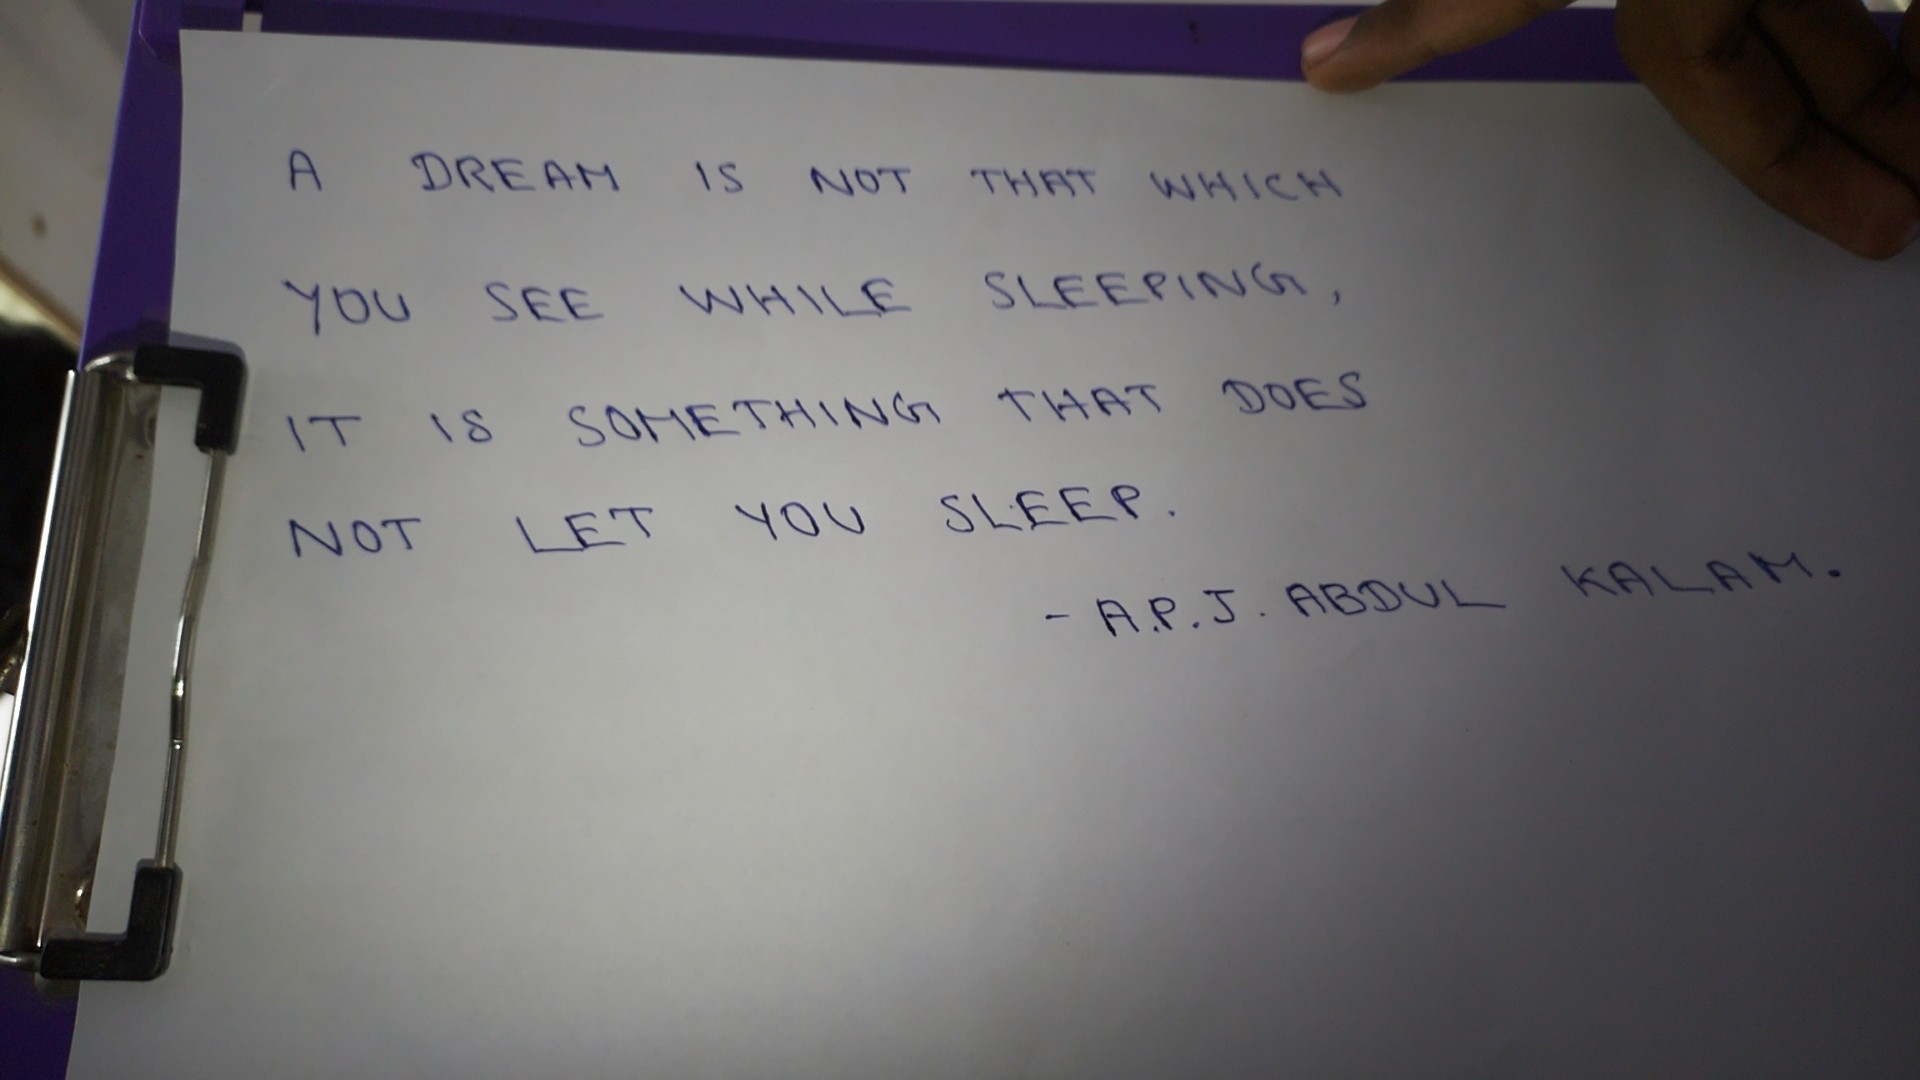 A DREAM IS NOT THAT WHICH
YOU SEE WHILE SLEEPING,
IT IS SOMETHING THAT DOES
NOT LET YOU SLEEP.
- A.P.J. ABDUL KALAM.